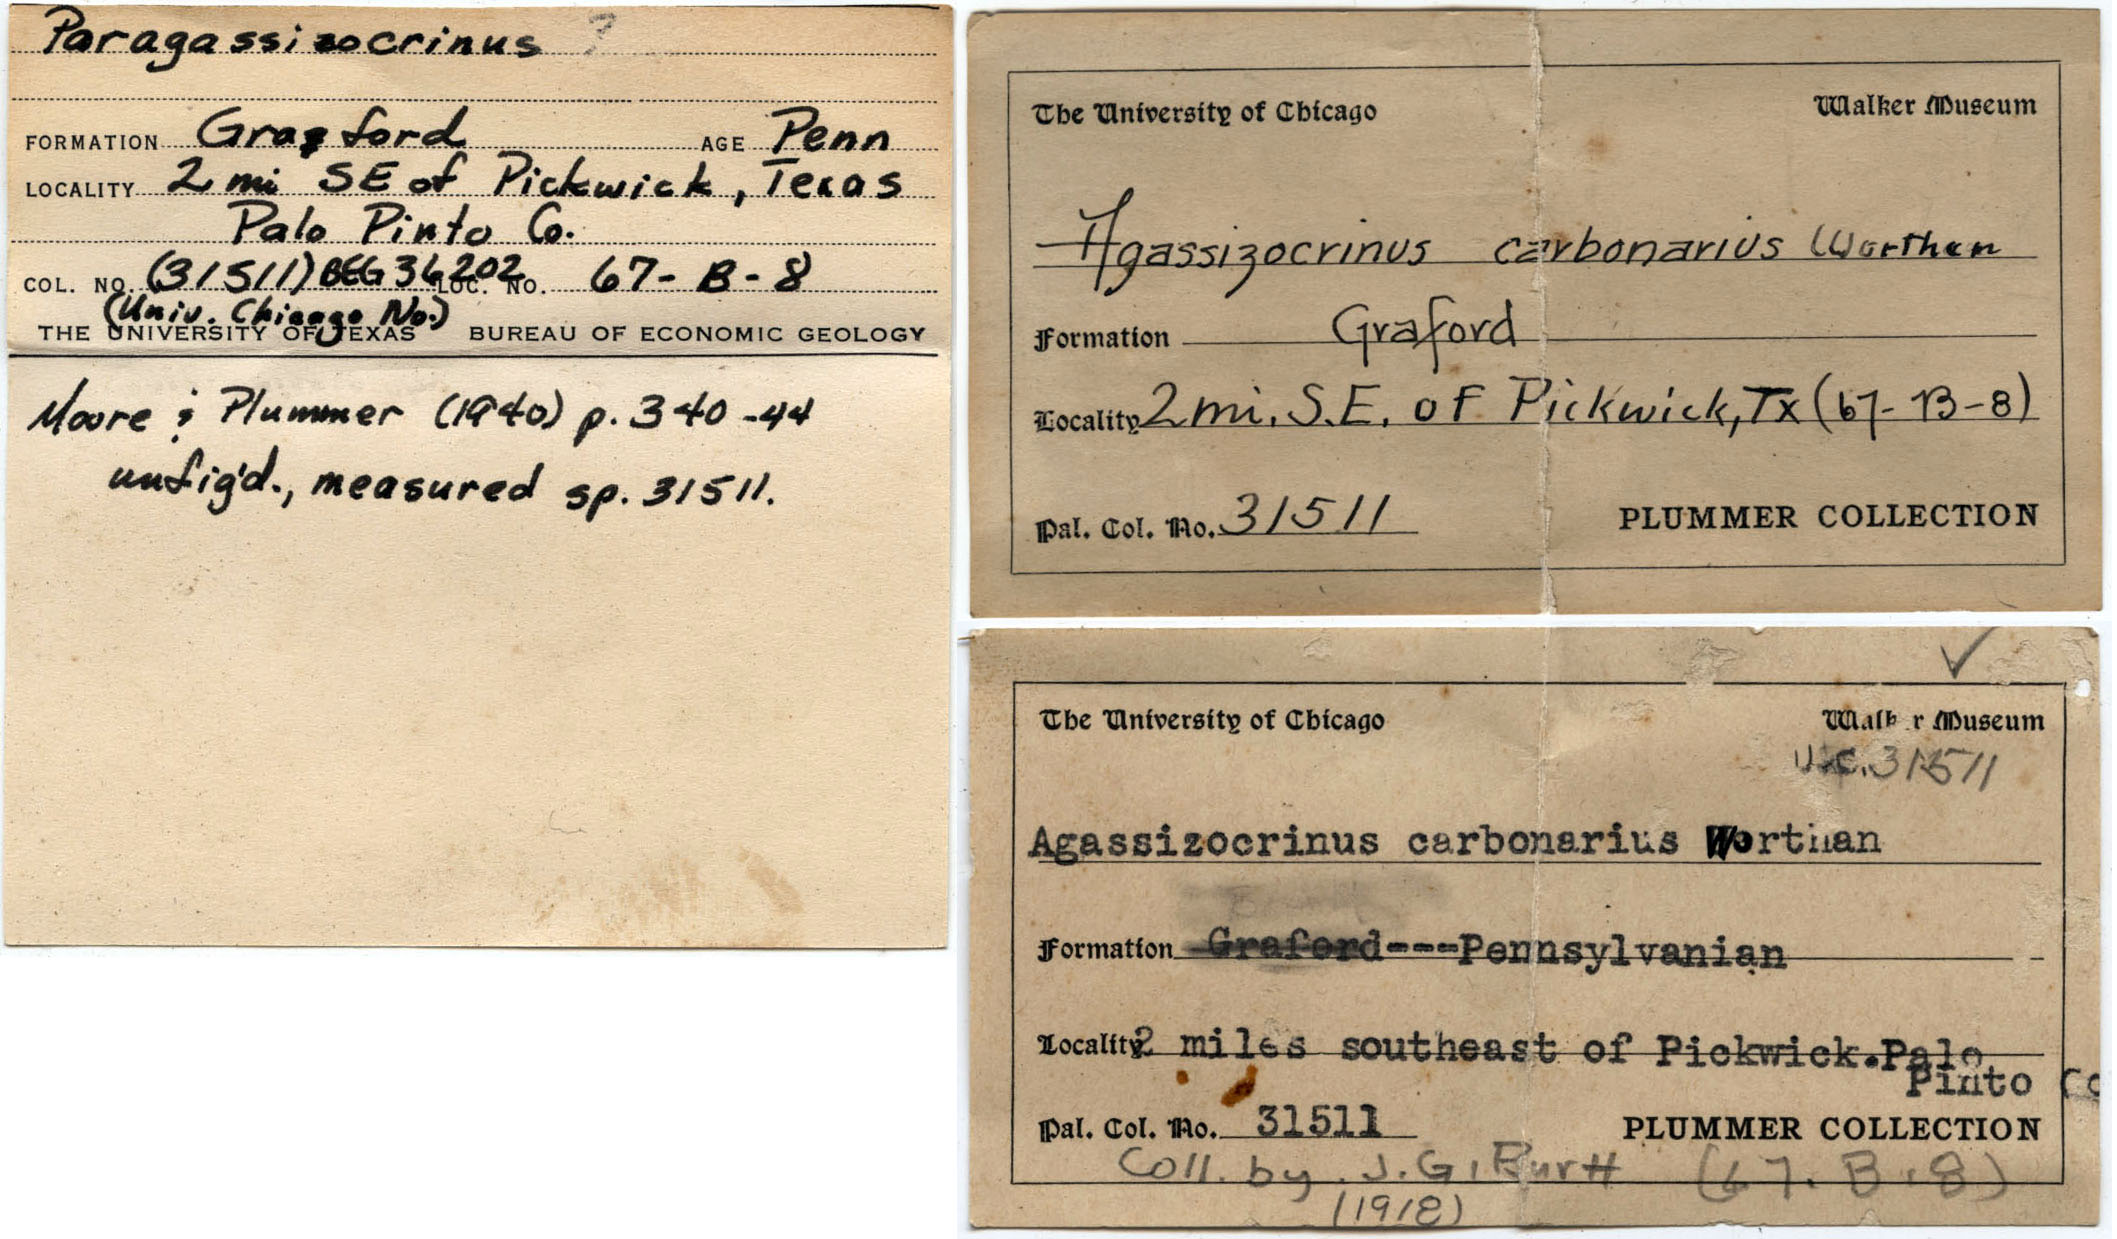 Paragassizocrinus ?
FORMATION Graford AGE Penn
LOCALITY 2 mi SE of Pickwick, Texas
Palo Pinto Co.
COL. NO. (31511) BEG 36202 LOC. NO. 67-B-8
(Univ. Chicago No.)
THE UNIVERSITY OF TEXAS BUREAU OF ECONOMIC GEOLOGY
Moore & Plummer (1940) p. 340-44
unfig'd., measured sp. 31511.
The University of Chicago Walker Museum
Agassizocrinus carbonarius Worthen
Formation Graford
Locality 2 mi. S.E. of Pickwick, Tx (67-B-8)
Pal. Col. No. 31511 PLUMMER COLLECTION
The University of Chicago Walk r Museum
U.C. 31511
Agassizocrinus carbonarius Worthan
Formation Graford---Pennsylvanian
Locality 2 miles southeast of Pickwick.Palo
Pinto Co
Pal. Col. No. 31511 PLUMMER COLLECTION
Coll. by J.G. Burtt (67.B.8)
(1918)